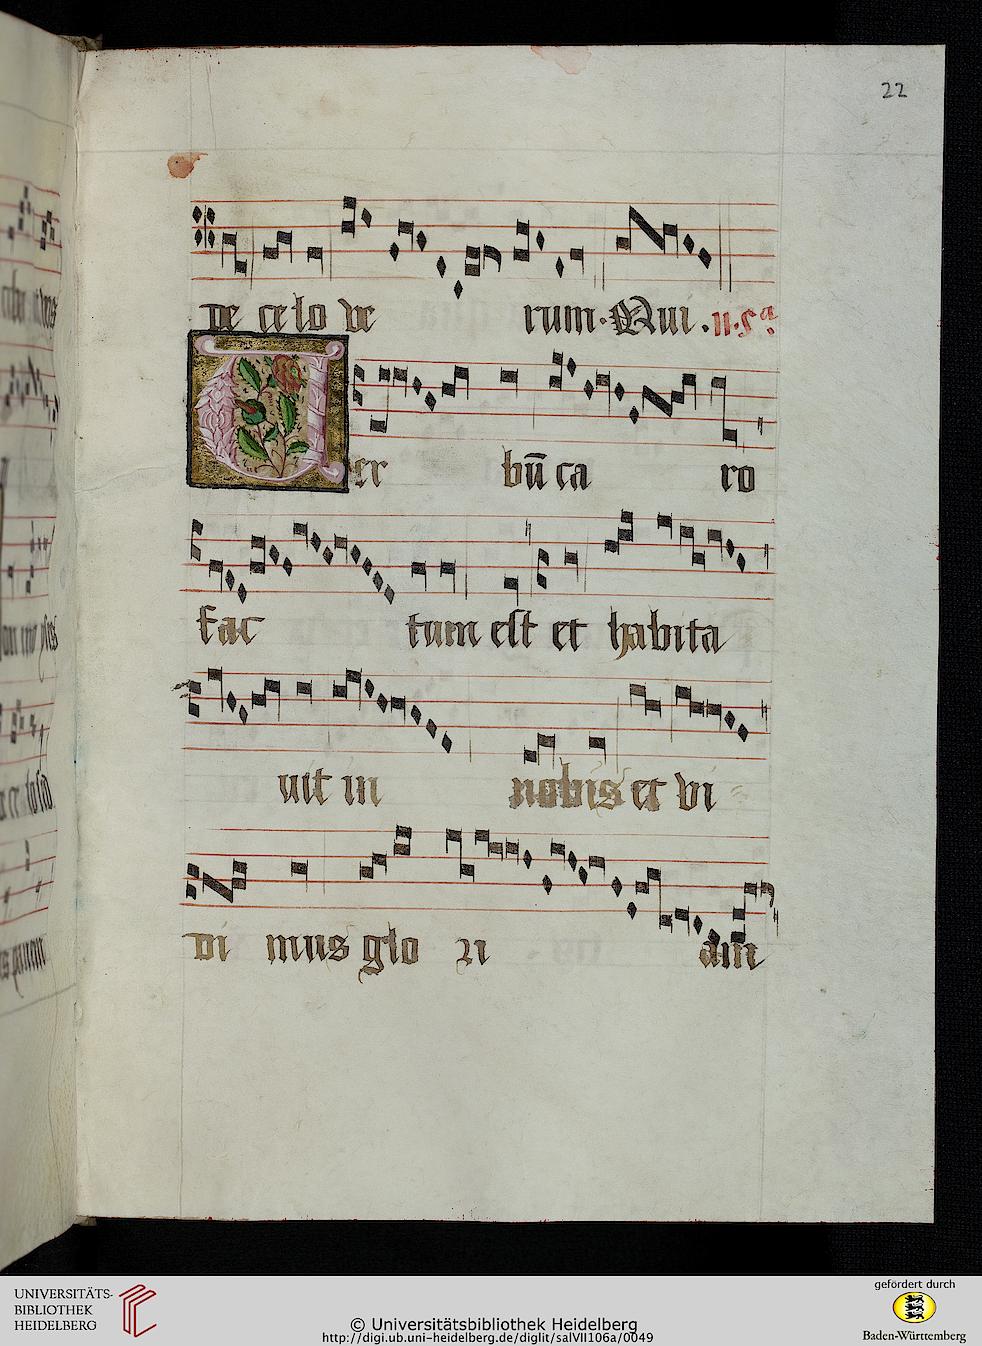 22
de celo ve rum · Qui · II · Sª
Uer bū ca ro
fac tum est et habita
uit in nobis et vi
di mus glo ri am
UNIVERSITÄTS-
BIBLIOTHEK
HEIDELBERG
© Universitätsbibliothek Heidelberg
http://digi.ub.uni-heidelberg.de/diglit/salVII106a/0049
gefördert durch
Baden-Württemberg